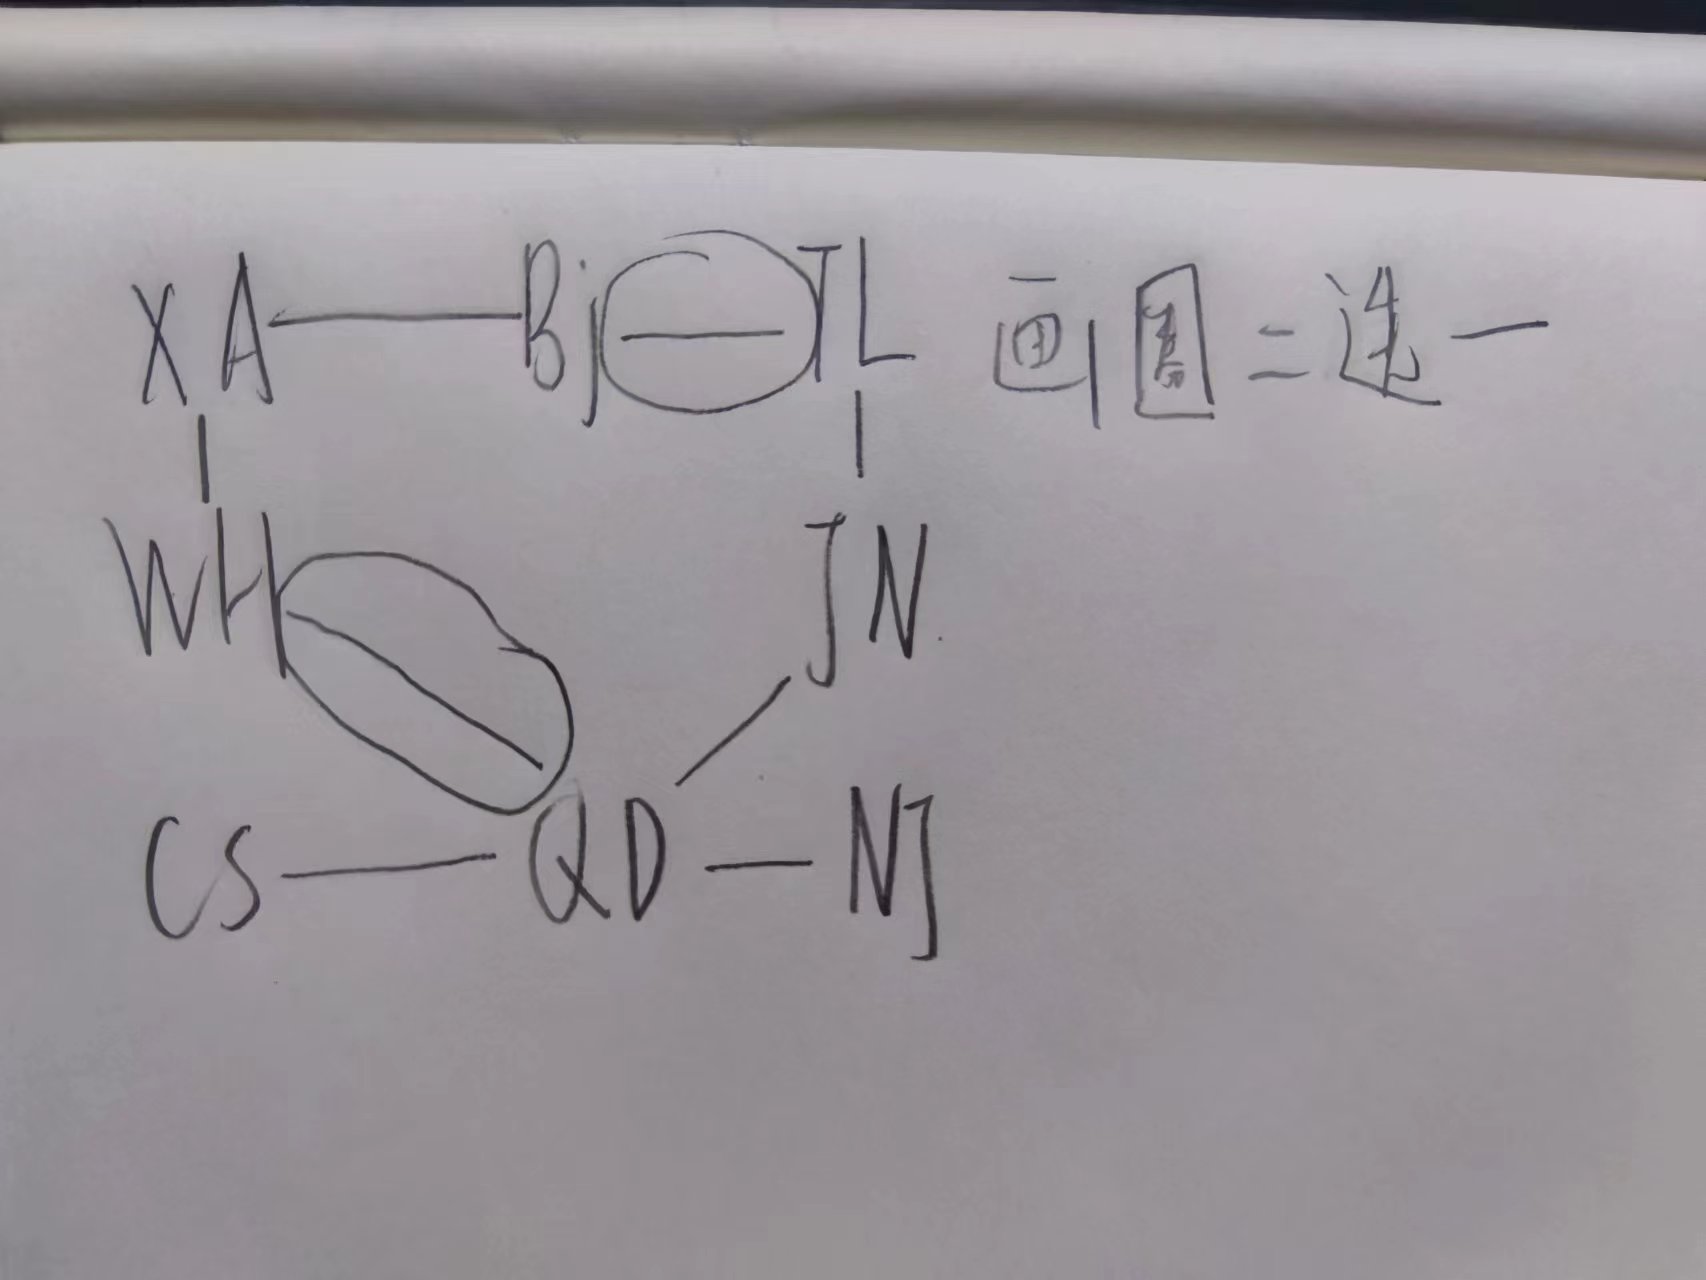 XA Bj TL 画圈=选一
WH JN
CS QD NJ